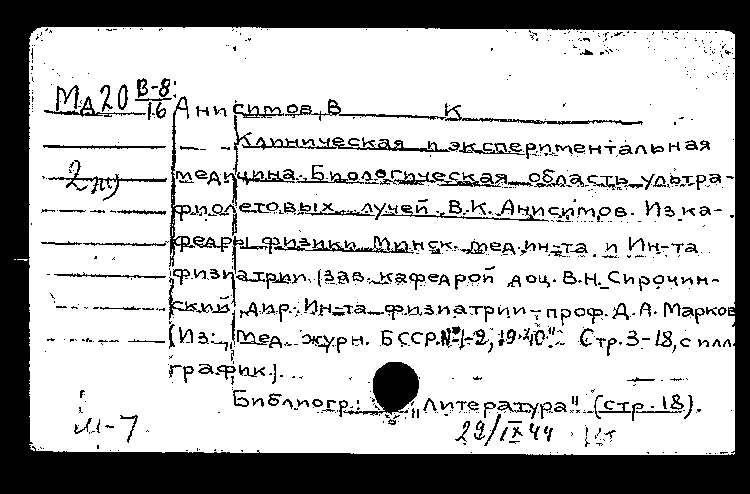 Мд20 В-8/16 Анисимов, В К
Клиническая и экспериментальная
2 медицина. Биологическая область ультра-
фиолетовых лучей. В.К. Анисимов. Из ка-
федры физики Минск. мед.ин-та и Ин-та
физиатрии (зав. кафедрой доц. В.Н. Сирочин-
ский, дир. Ин-та физиатрии-проф. Д.А. Марков
(Из: „Мед. журн. БССР. №1-2, 1940". Стр. 3-18, с илл.
график.).
Библиогр: „Литература" (стр. 18).
М-7 29/IX 44